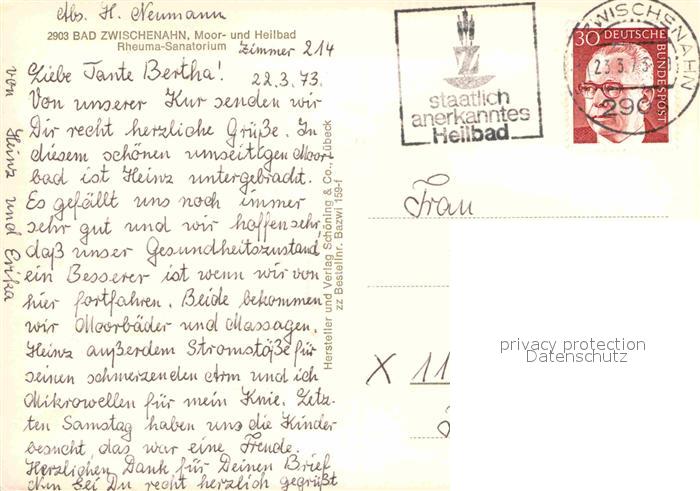 Abs. H. Neumann
2903 BAD ZWISCHENAHN, Moor- und Heilbad
Rheuma-Sanatorium
Zimmer 214
Liebe Tante Bertha!
22.3.73.
Von unserer Kur senden wir
Dir recht herzliche Grüße. In
diesem schönen umseitigen Moor-
bad ist Heinz untergebracht.
Es gefällt uns noch immer
sehr gut und wir hoffen sehr,
daß unser Gesundheitszustand
ein Besserer ist wenn wir von
hier fortfahren. Beide bekommen
wir Moorbäder und Massagen,
Heinz außerdem Stromstöße für
seinen schmerzenden Arm und ich
Mikrowellen für mein Knie. Letz-
ten Samstag haben uns die Kinder
besucht, das war eine Freude.
Herzlichen Dank für Deinen Brief
Nun sei Du recht herzlich gegrüßt
von Heinz und Erika
Hersteller und Verlag Schöning & Co., Lübeck
zz Bestellnr. Bazwi 159-f
staatlich
anerkanntes
Heilbad
ZWISCHENAHN
23.3.73
290
30 DEUTSCHE
BUNDESPOST
Frau
X 11
privacy protection
Datenschutz